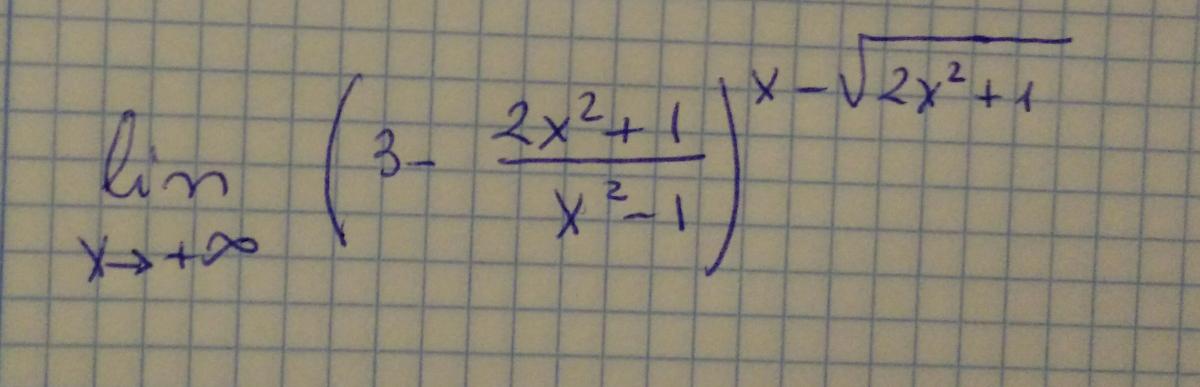 lim (3 - (2x² + 1)/(x² - 1))^(x - √(2x² + 1))
x → +∞